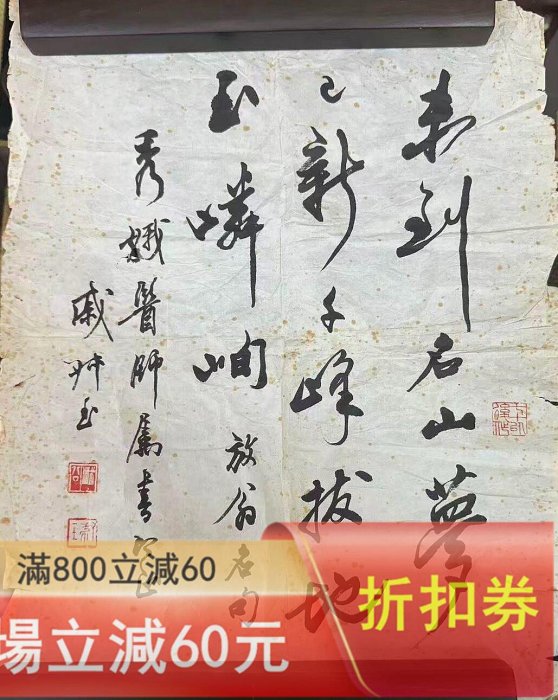 未到名山夢
已新千峰拔地
玉嶙峋 放翁名句
秀娥醫師屬書
戚叔玉
滿800立減60
場立減60元
折扣券